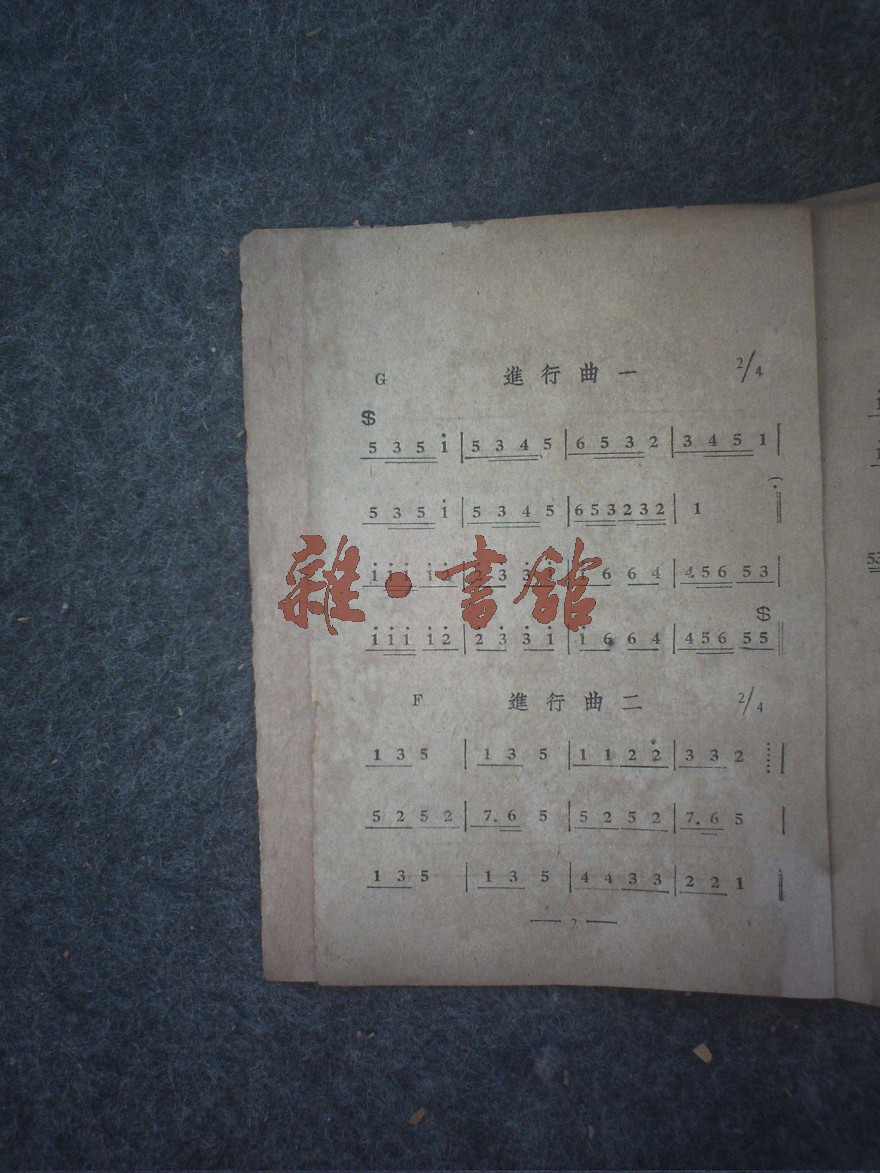 G 進行曲一 2/4
𝄋
5 3 5 i̇ | 5 3 4 5 | 6 5 3 2 | 3 4 5 1 |
5 3 5 i̇ | 5 3 4 5 | 6 5 3 2 3 2 | 1 ‖
雜·書館
1̇ 6 6 4 | 4 5 6 5 3 |
𝄋
1̇ 1̇ 1̇ 1̇ 2̇ | 2̇ 3̇ 3̇ 1̇ | 1̇ 6 6 4 | 4 5 6 5 5 ‖
F 進行曲二 2/4
1 3 5 | 1 3 5 | 1 1 2 2 | 3 3 2 |
5 2 5 2 | 7. 6 5 | 5 2 5 2 | 7. 6 5 |
1 3 5 | 1 3 5 | 4 4 3 3 | 2 2 1 |
— 2 —